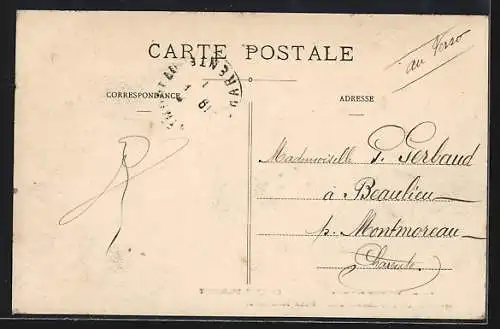 CARTE POSTALE
au Verso
CORRESPONDANCE
ADRESSE
CHARENTE
Mademoiselle P. Gerbaud
à Beaulieu
p. Montmoreau
Charente